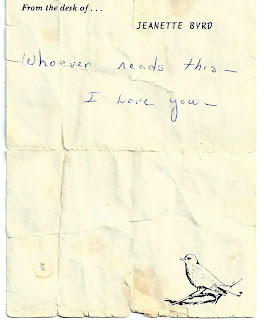 From the desk of...
JEANETTE BYRD
Whoever reads this-
I love you-